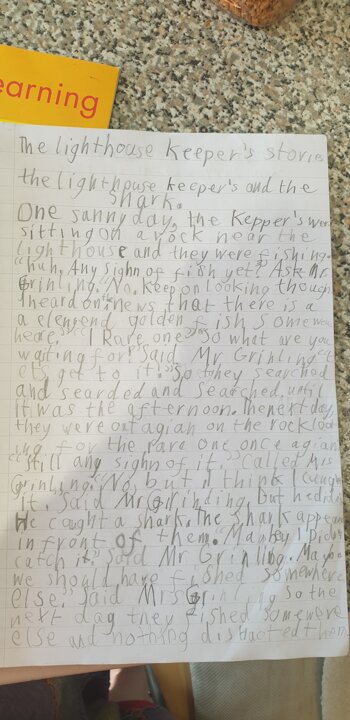 earning
The lighthouse keeper's storie
the lighthouse keeper's and the
Shark.
One sunny day, the Kepper's wer
sitting on a rock near the
lighthouse and they were fishing.
"huh, Any sighn of fish yet? Ask Mr.
Grinling. "No, keep on looking though
I heard on news that there is a
a elengend golden fish somewe
heare," "I Rare one" "So what are you
waiting for" said Mr Grinling. "L
ets get to it." So they searched
and searded and searched, until
it was the afternoon. The next day,
they were out agian on the rock loo
king for the rare one once agian
"Still any sighn of it." Called Mrs
Grinling. "No, but I think I
it. Said Mr Grinding, but he didn
He caught a shark. The shark appea
in front of them. Maybey I
catch it" said Mr Grinling. Maybe
we should have fished somewhere
else." Said Mrs Grinling So the
next day they fished somewere
else and nothing dishacted them